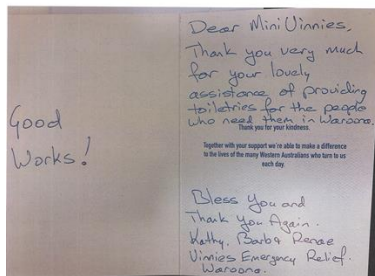 Good
Works!
Dear Mini Vinnies,
Thank you very much
for your lovely
assistance of providing
toiletries for the people
who need them in Waroona.
Thank you for your kindness.
Together with your support we're able to make a difference
to the lives of the many Western Australians who turn to us
each day.
Bless You and
Thank You Again.
Kathy, Barb & Renae
Vinnies Emergency Relief.
Waroona.